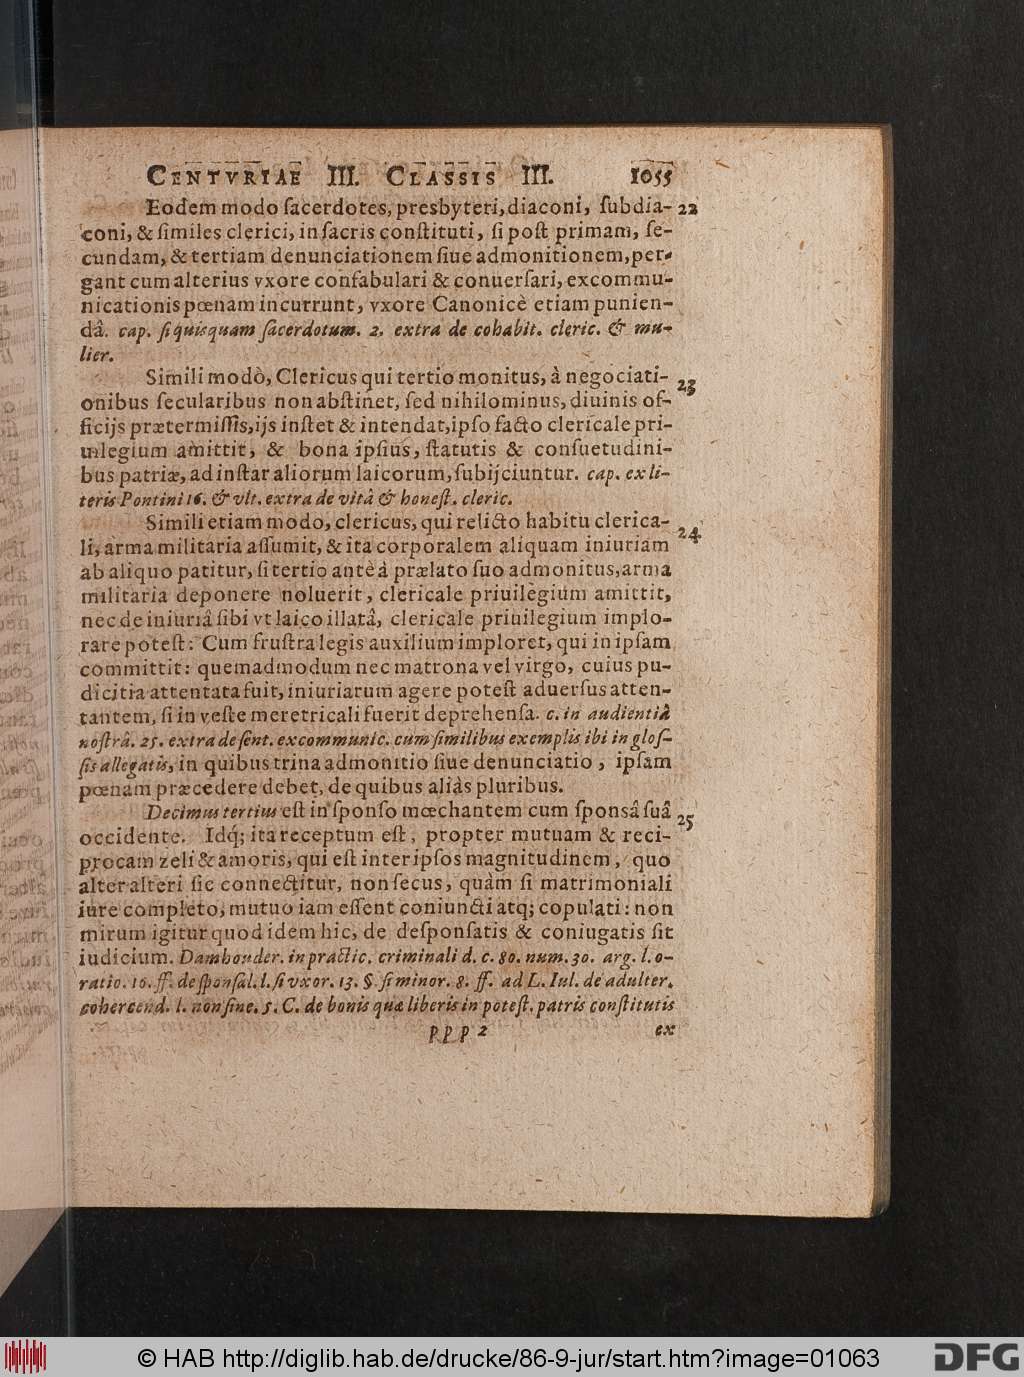 CENTVRIAE III. CLASSIS III. 1055
Eodem modo ſacerdotes, presbyteri, diaconi, ſubdia- 22
coni, & ſimiles clerici, in ſacris conſtituti, ſi poſt primam, ſe-
cundam, & tertiam denunciationem ſiue admonitionem, per-
gant cum alterius vxore confabulari & conuerſari, excommu-
nicationis pœnam incurrunt, vxore Canonicè etiam punien-
dâ. cap. ſi quisquam ſacerdotum. 2. extra de cohabit. cleric. & mu-
lier.
Simili modò, Clericus qui tertio monitus, à negociati- 23
onibus ſecularibus non abſtinet, ſed nihilominus, diuinis of-
ficijs prætermiſſis, ijs inſtet & intendat, ipſo facto clericale pri-
uilegium amittit, & bona ipſius, ſtatutis & conſuetudini-
bus patriæ, ad inſtar aliorum laicorum, ſubijciuntur. cap. ex li-
teris Pontini 16. & vlt. extra de vitâ & honeſt. cleric.
Simili etiam modo, clericus, qui relicto habitu clerica- 24
li, arma militaria aſſumit, & ita corporalem aliquam iniuriam
ab aliquo patitur, ſi tertio antè à prælato ſuo admonitus, arma
militaria deponere noluerit, clericale priuilegium amittit,
nec de iniuriâ ſibi vt laico illatâ, clericale priuilegium implo-
rare poteſt: Cum fruſtra legis auxilium imploret, qui in ipſam
committit: quemadmodum nec matrona vel virgo, cuius pu-
dicitia attentata fuit, iniuriarum agere poteſt aduerſus atten-
tantem, ſi in veſte meretricali fuerit deprehenſa. c. in audientiâ
noſtrâ. 25. extra de ſent. excommunic. cum ſimilibus exemplis ibi in gloſ-
ſis allegatis, in quibus trina admonitio ſiue denunciatio, ipſam
pœnam præcedere debet, de quibus aliàs pluribus.
Decimus tertius eſt in ſponſo mœchantem cum ſponsâ ſuâ 25
occidente. Idq́; ita receptum eſt, propter mutuam & reci-
procam zeli & amoris, qui eſt inter ipſos magnitudinem, quo
alter alteri ſic connectitur, non ſecus, quàm ſi matrimoniali
iure completo, mutuo iam eſſent coniuncti atq; copulati: non
mirum igitur quod idem hic, de deſponſatis & coniugatis ſit
iudicium. Damhouder. in practic. criminali d. c. 80. num. 30. arg. l. o-
ratio. 16. ff. de ſponſal. l. ſi vxor. 13. §. ſi minor. 8. ff. ad L. Iul. de adulter.
cohercend. l. non ſine. 5. C. de bonis quæ liberis in poteſt. patris conſtitutis
ppp 2 ex
© HAB http://diglib.hab.de/drucke/86-9-jur/start.htm?image=01063 DFG